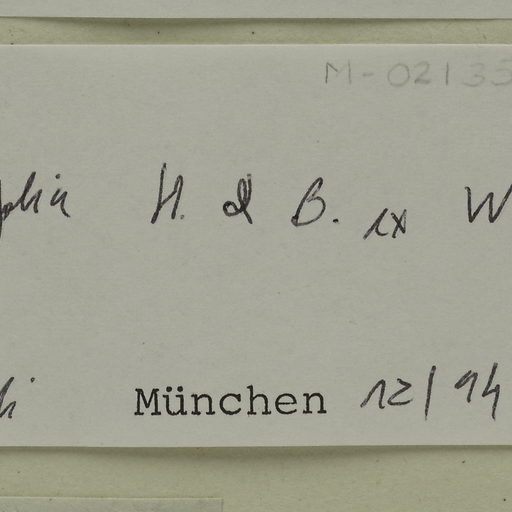 M-02135
H. & B. ex W
München 12/94